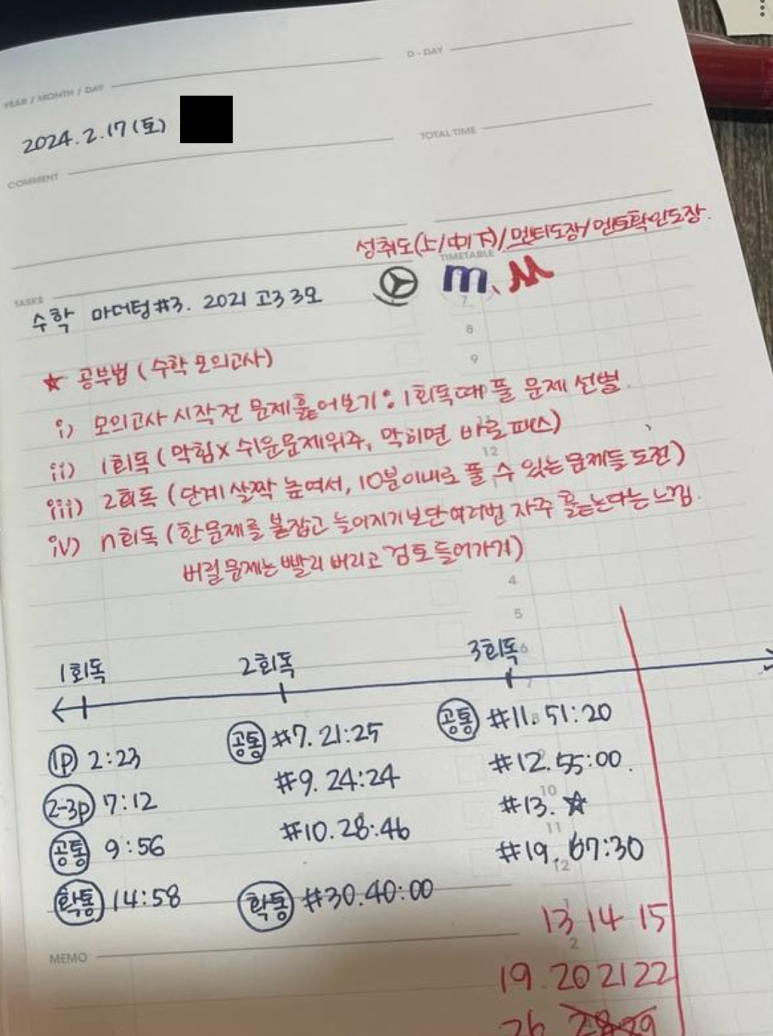 YEAR / MONTH / DAY
D - DAY
2024.2.17(토)
COMMENT
TOTAL TIME
성취도(上/中/下)/멘티도장/멘토확인도장.
TASKS
TIMETABLE
수학 마더텅#3. 2021 고3 3모
m. M
7
8
★ 공부법 (수학 모의고사)
9
i) 모의고사 시작전 문제훑어보기: 1회독때 풀 문제 선별
ii) 1회독 (막힘X 쉬운문제위주, 막히면 바로 패스)
12
iii) 2회독 (단계 살짝 높여서, 10분이내로 풀 수 있는 문제들 도전)
iv) n회독 (한문제를 붙잡고 늘어지기보단 여러번 자주 훑는다는 느낌.
버릴 문제는 빨리 버리고 검토 들어가기)
4
5
1회독 2회독 3회독
6
7
1p 2:23 공통 #7. 21:25 공통 #11. 51:20
2-3p 7:12 #9. 24:24 #12. 55:00.
10
공통 9:56 #10. 28:46 #13. ☆
11
확통 14:58 확통 #30. 40:00 #19. 67:30
12
1
13 14 15
MEMO
2
19. 20 21 22
26 28 29